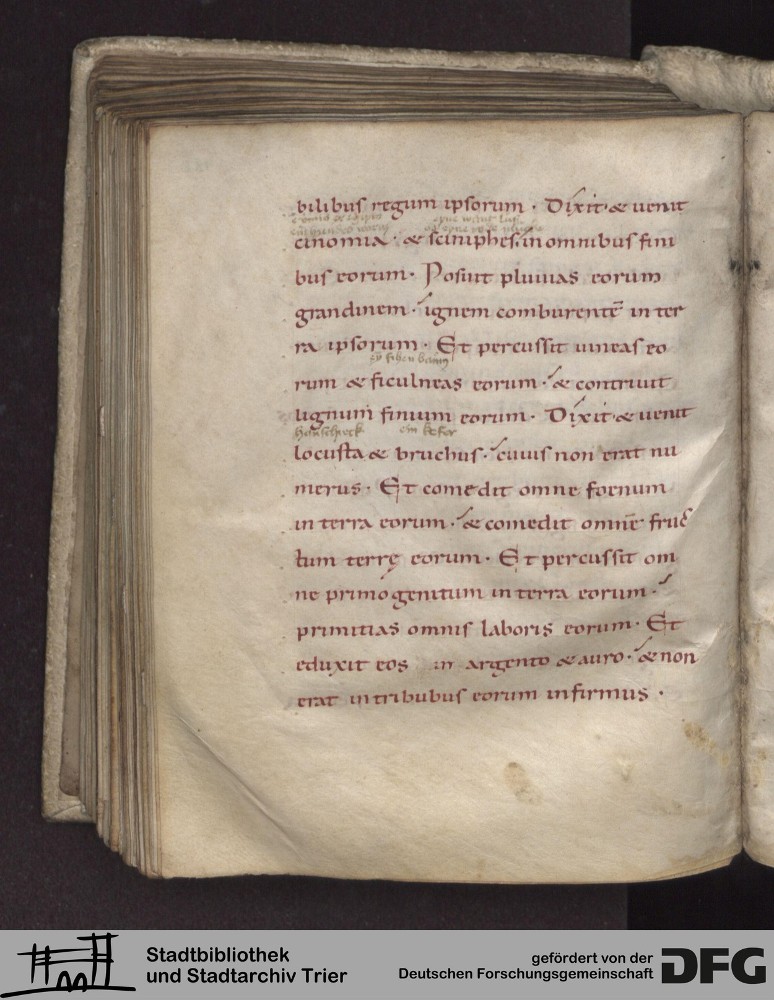 bilibus regum ipsorum · Dixit · & uenit
cinomia · & sciniphes · in omnibus fini
bus eorum · Posuit pluuias eorum
grandinem · ignem comburentē in ter
ra ipsorum · Et percussit uineas eo
rum & ficulneas eorum · & contriuit
lignum finium eorum · Dixit · & uenit
ein kefer
locusta & bruchus · cuius non erat nu
merus · Et comedit omne foenum
in terra eorum · & comedit omnē fruc
tum terrę eorum · Et percussit om
ne primogenitum in terra eorum ·
primitias omnis laboris eorum · Et
eduxit eos in argento & auro · & non
erat in tribubus eorum infirmus ·
Stadtbibliothek
und Stadtarchiv Trier
gefördert von der
Deutschen Forschungsgemeinschaft
DFG